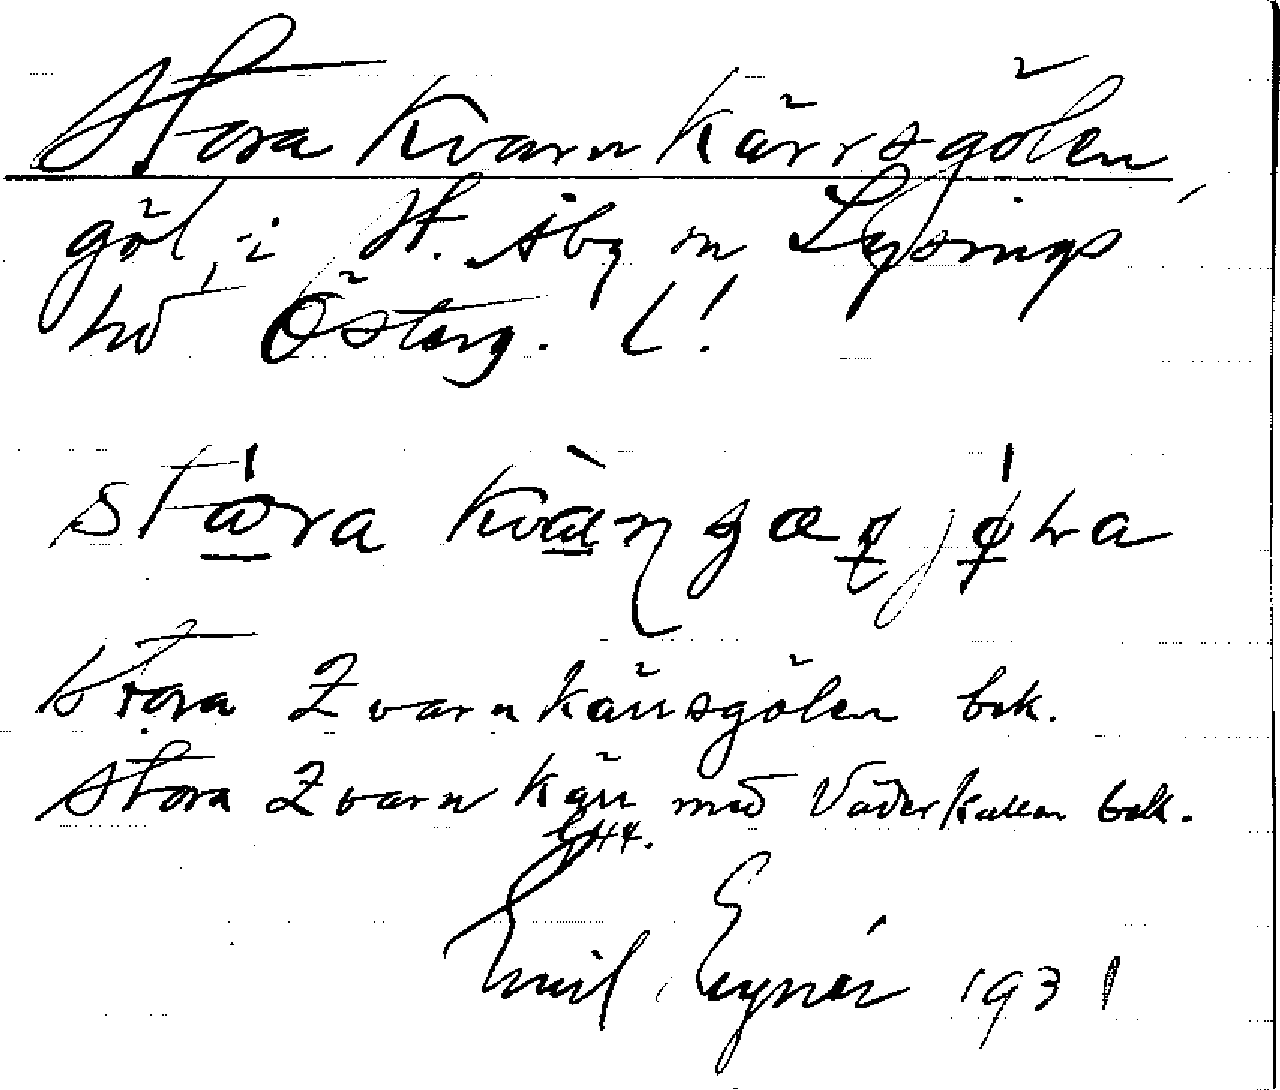 Stora Kvarnkärrsgölen,
göl, i St. Åby sn Lysings
hd Österg. l!
stora Zvarnkärrsgölen bek.
Stora Zvarnkärr med Väderkullen bek.
Emil Eynér 1931